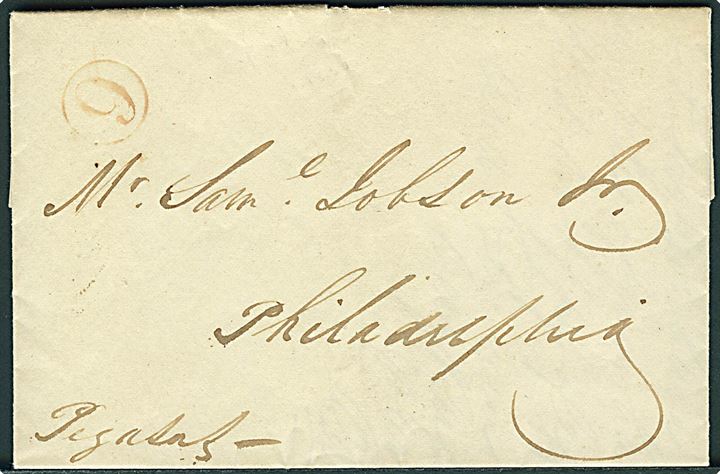 6
Mr. Sam.e Jobson Jr.
Philadelphia
Pegasus